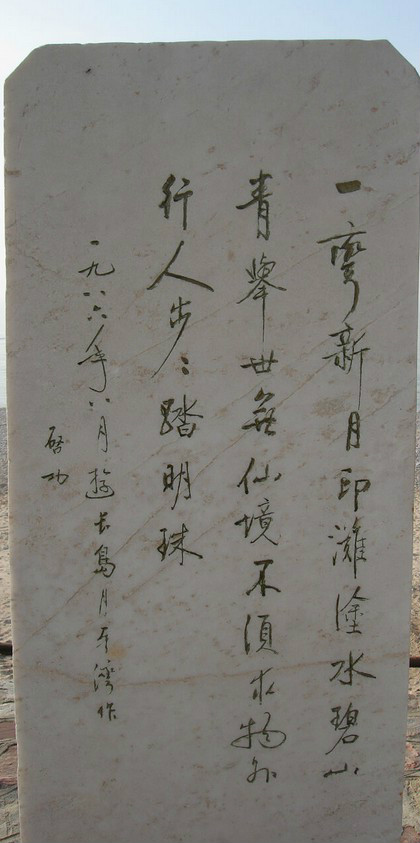 一弯新月印滩涂水碧山
青举世无仙境不须求物外
行人步々踏明珠
一九八六年八月游长岛月牙湾作
启功